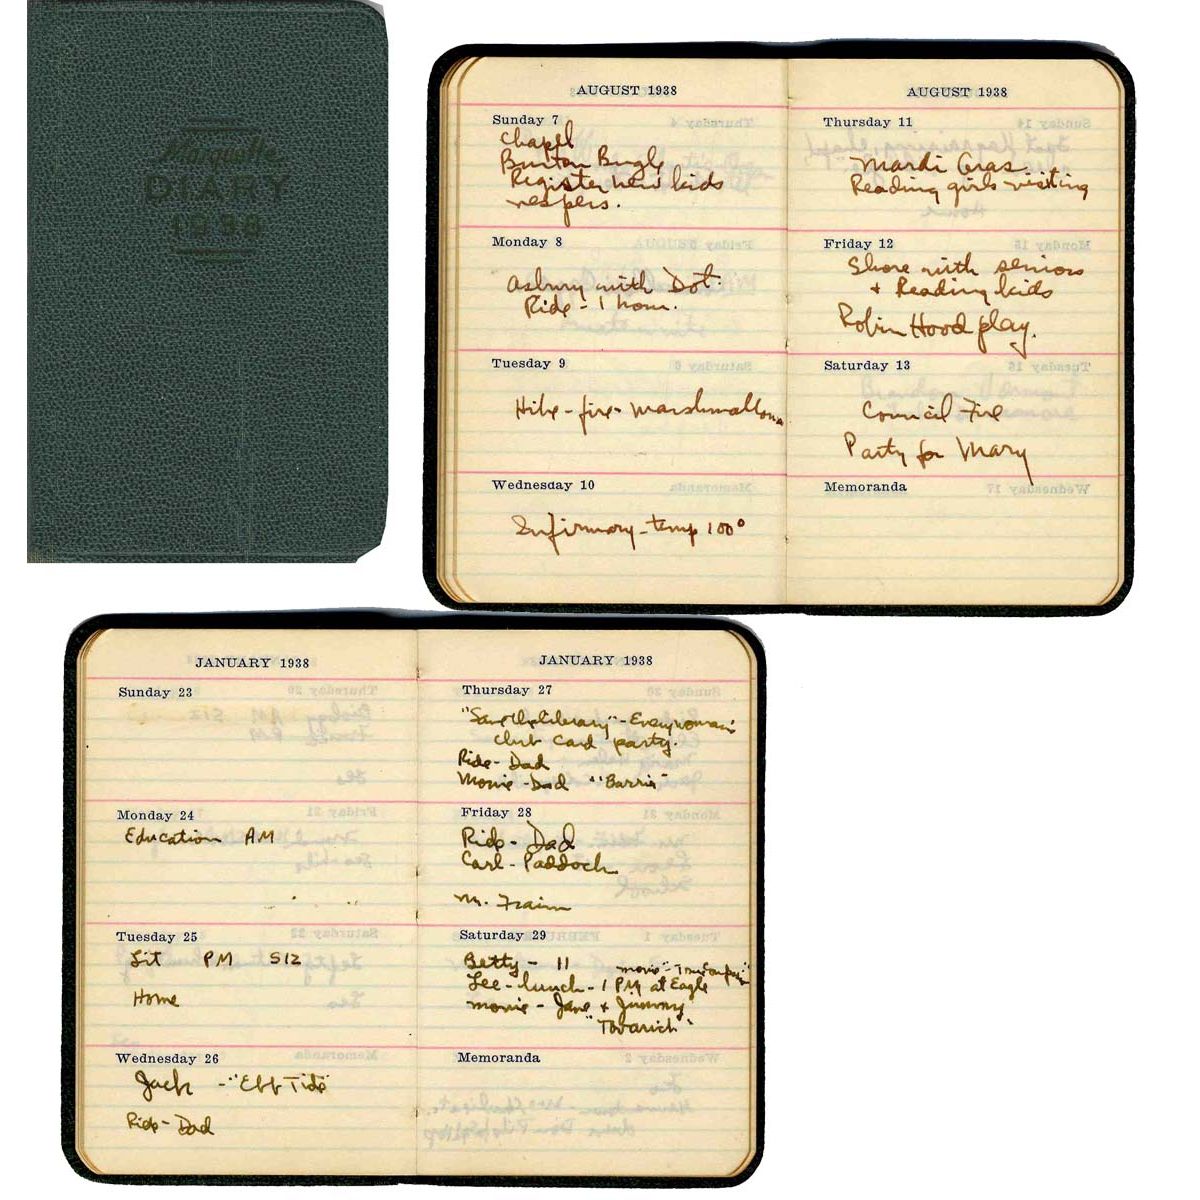 Marquette
DIARY
1938
AUGUST 1938
Sunday 7
Chapel
Burton Bugle
Register new kids
vespers.
Monday 8
Asbury with Dot.
Ride - 1 hour.
Tuesday 9
Hike - fire - marshmallows
Wednesday 10
Infirmary - temp 100°
AUGUST 1938
Thursday 11
Mardi Gras.
Reading girls visiting
Friday 12
Shore with seniors
+ Reading kids
Robin Hood play.
Saturday 13
Council Fire
Party for Mary
Memoranda
JANUARY 1938
Sunday 23
Monday 24
Education AM
Tuesday 25
Lit PM 512
Home
Wednesday 26
Jack - "Ebb Tide"
Ride - Dad
JANUARY 1938
Thursday 27
Everywoman's
club card party.
Ride - Dad
Movie - Dad "Barrie"
Friday 28
Ride - Dad
Carl - Paddock
M. Fraim
Saturday 29
Betty - 11 movie -
Lee - lunch - 1 PM at Eagle
movie - Jane + Jimmy
"Tovarich"
Memoranda